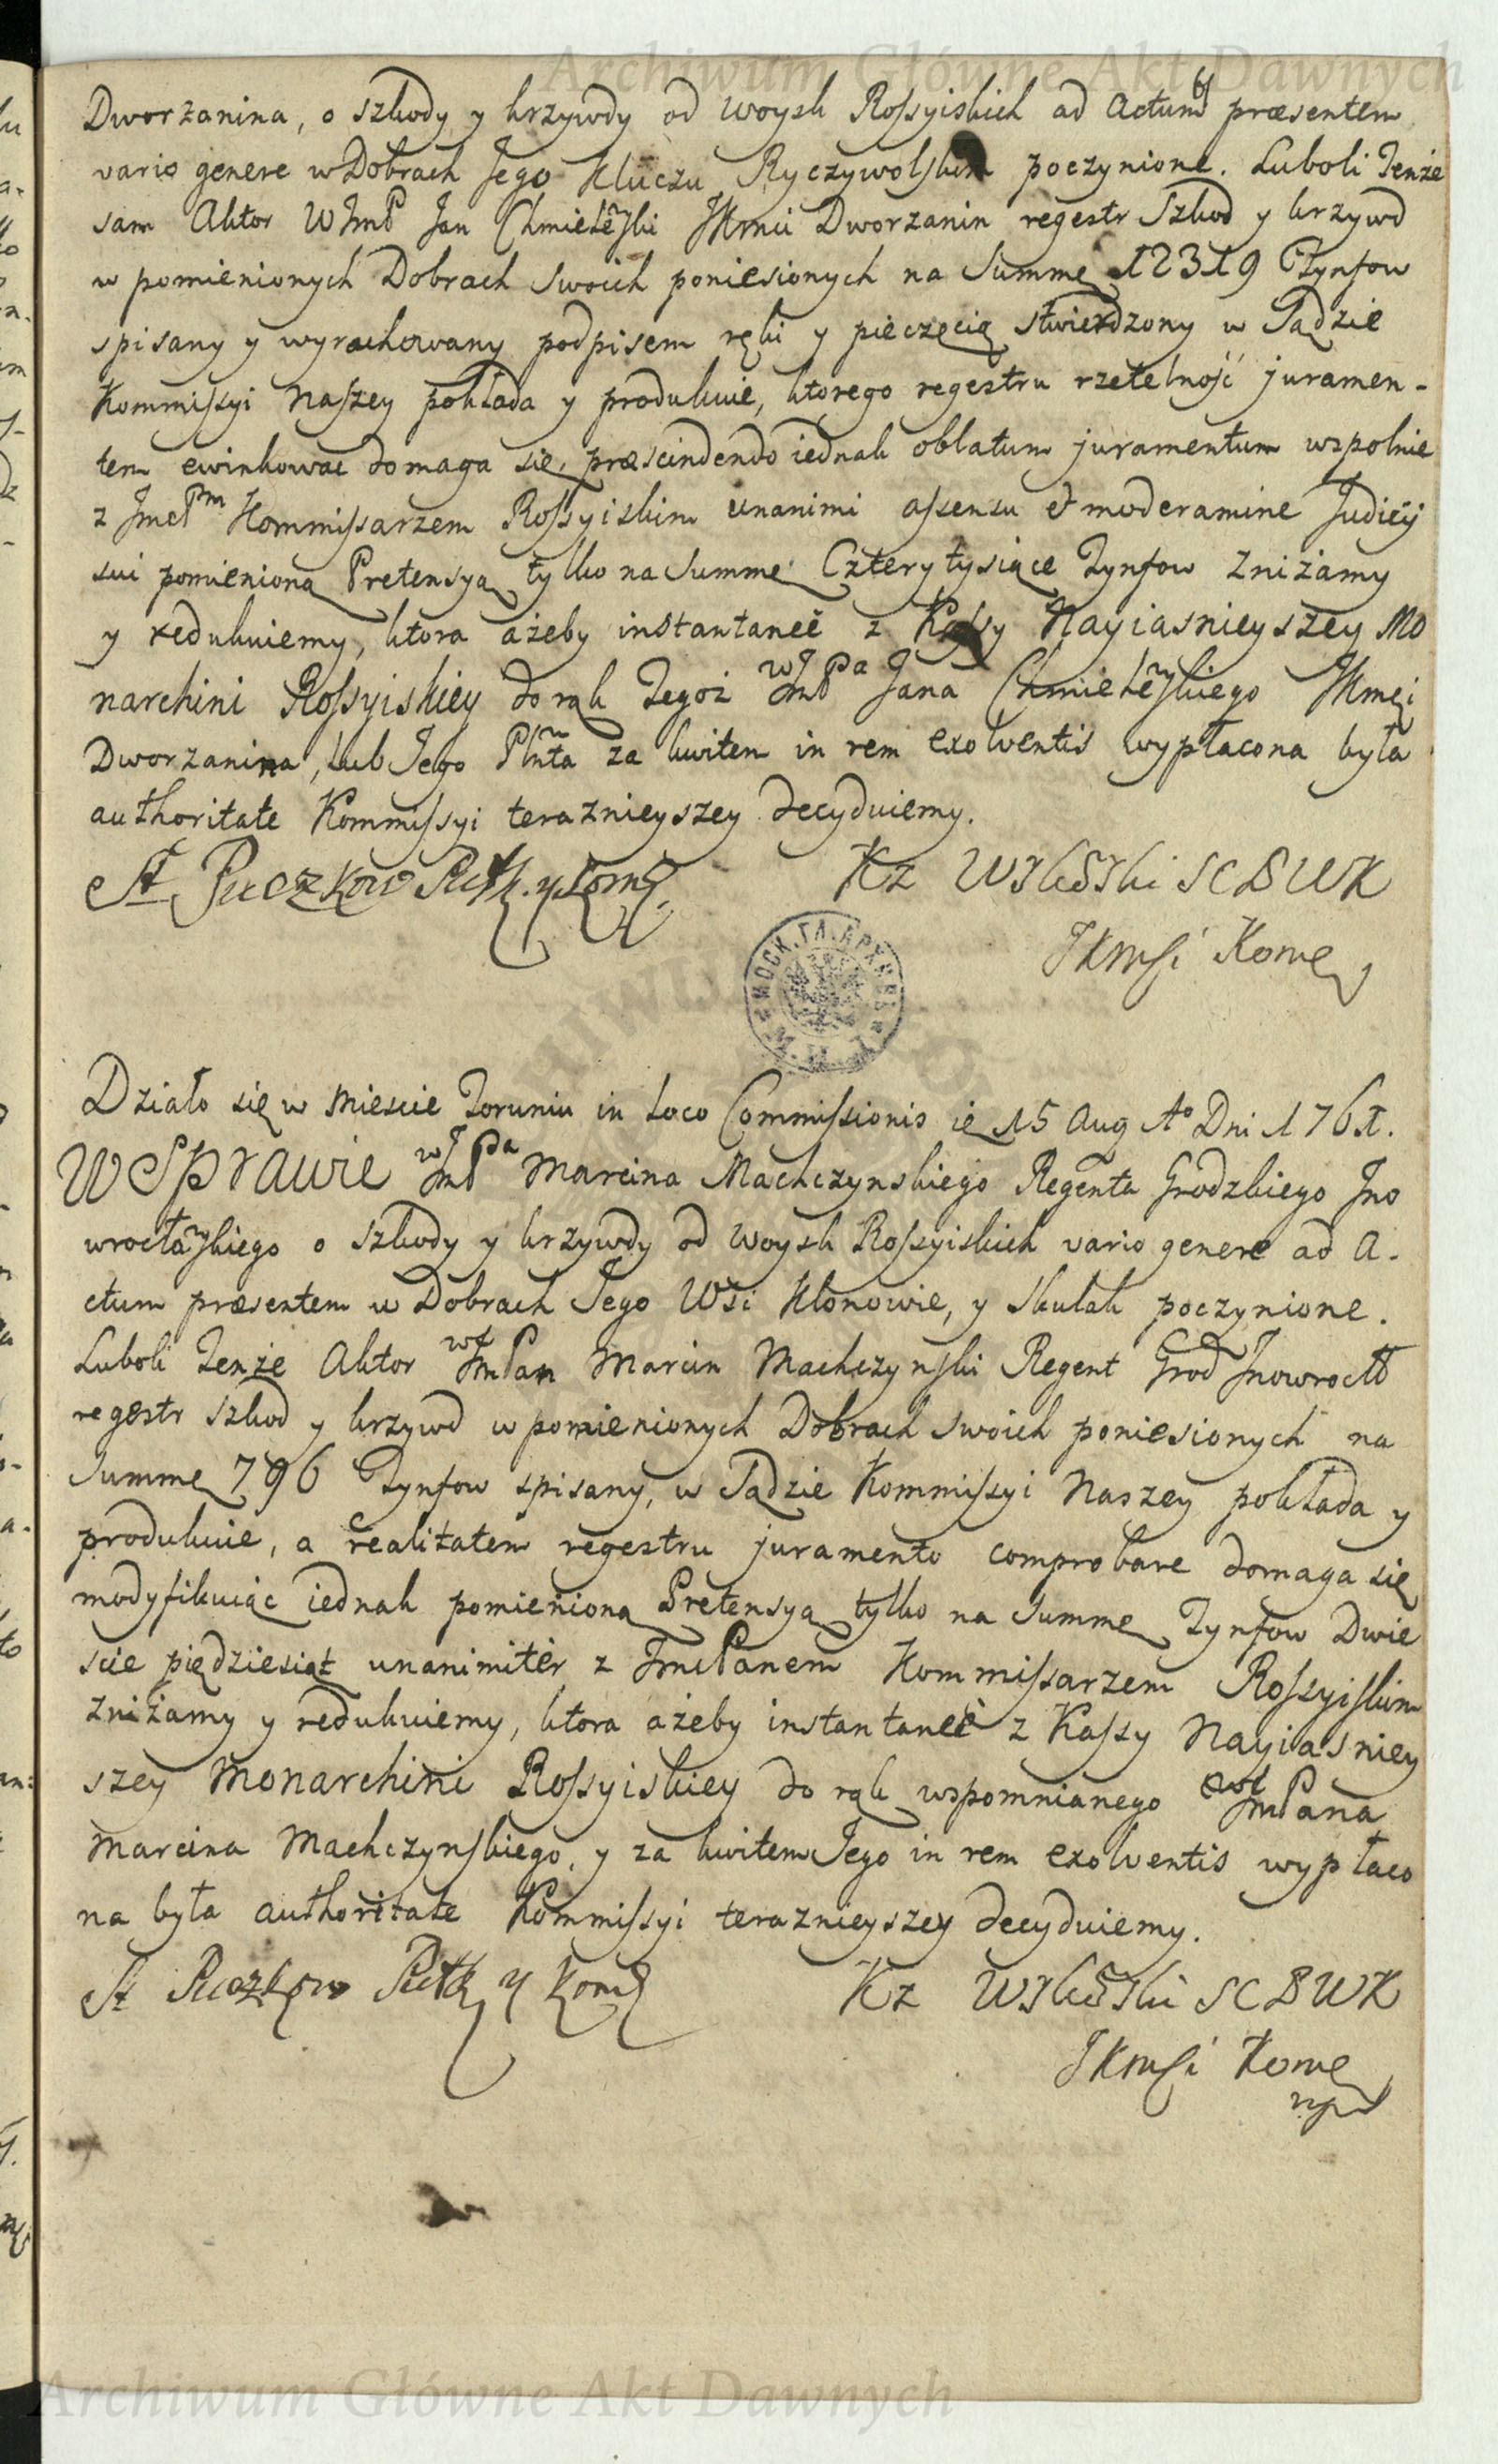 Archiwum Główne Akt Dawnych
Dworzanina, o szkody y krzywdy od woysk Rossyiskich ad actum præsentem
vario genere w Dobrach Jego Kluczu Ryczywolskim poczynione. Luboli Tenże
sam Aktor WJmP Jan Chmielewski JKmci Dworzanin regestr Szkod y krzywd
w pomienionych Dobrach swoich poniesionych na Summę 12319 Tynfow
spisany y wyrachowany podpisem ręki y pieczęcią stwierdzony w Sądzie
Kommissyi Naszey pokłada y produkuie, ktorego regestru rzetelność juramen-
tem ewinkowac domaga się, præscindendo iednak oblatum juramentum wspolnie
z JmcPm Kommissarzem Rossyiskim unanimi assensu & moderamine Judicij
sui pomienioną Pretensyą tylko na Summę Cztery tysiące Tynfow Zniżamy
y redukuiemy, ktora ażeby instantaneè z Kassy Nayiasnieyszey Mo
narchini Rossyiskiey do rąk Tegoż WJmPa Jana Chmielewskiego JKmci
Dworzanina, lub Jego Plnta za kwitem in rem exolventis wypłacona była
authoritate Kommissyi teraznieyszey decyduiemy.
St Puczkow Putk. y Kom.
Kz SCBWK
JKmsi Kome
МОСК. ГЛ. АРХИВЪ М. И. Д.
Działo się w Miescie Toruniu in Loco Commissionis ie 15 Aug Ao Dni 1761.
W Sprawie WJmPa Marcina Machczynskiego Regenta Grodzkiego Jno
wrocławskiego o szkody y krzywdy od woysk Rossyiskich vario genere ad a-
ctum præsentem w Dobrach Jego Wsi Klonowie, y Skulak poczynione.
Luboli Tenże Aktor WJmPan Marcin Machczynski Regent Grod Jnowrocłł
regestr szkod y krzywd w pomienionych Dobrach swoich poniesionych na
Summę 796 Tynfow spisany, w Sądzie Kommissyi Naszey pokłada y
produkuie, a realitatem regestru juramento comprobare domaga się
modyfikuiąc iednak pomienioną Pretensyą tylko na Summę Tynfow Dwie
scie piędziesiąt unanimitèr z JmcPanem Kommissarzem Rossyiskim
Zniżamy y redukuiemy, ktora ażeby instantaneè z Kassy Nayiasniey
szey Monarchini Rossyiskiey do rąk wspomnianego WJmPana
Marcina Machczynskiego, y za kwitem Jego in rem exolventis wypłaco
na była authoritate Kommissyi teraznieyszey decyduiemy.
St Puczkow Putk y Kom
Kz SCBWK
JKmsi Kome
mp
Archiwum Główne Akt Dawnych